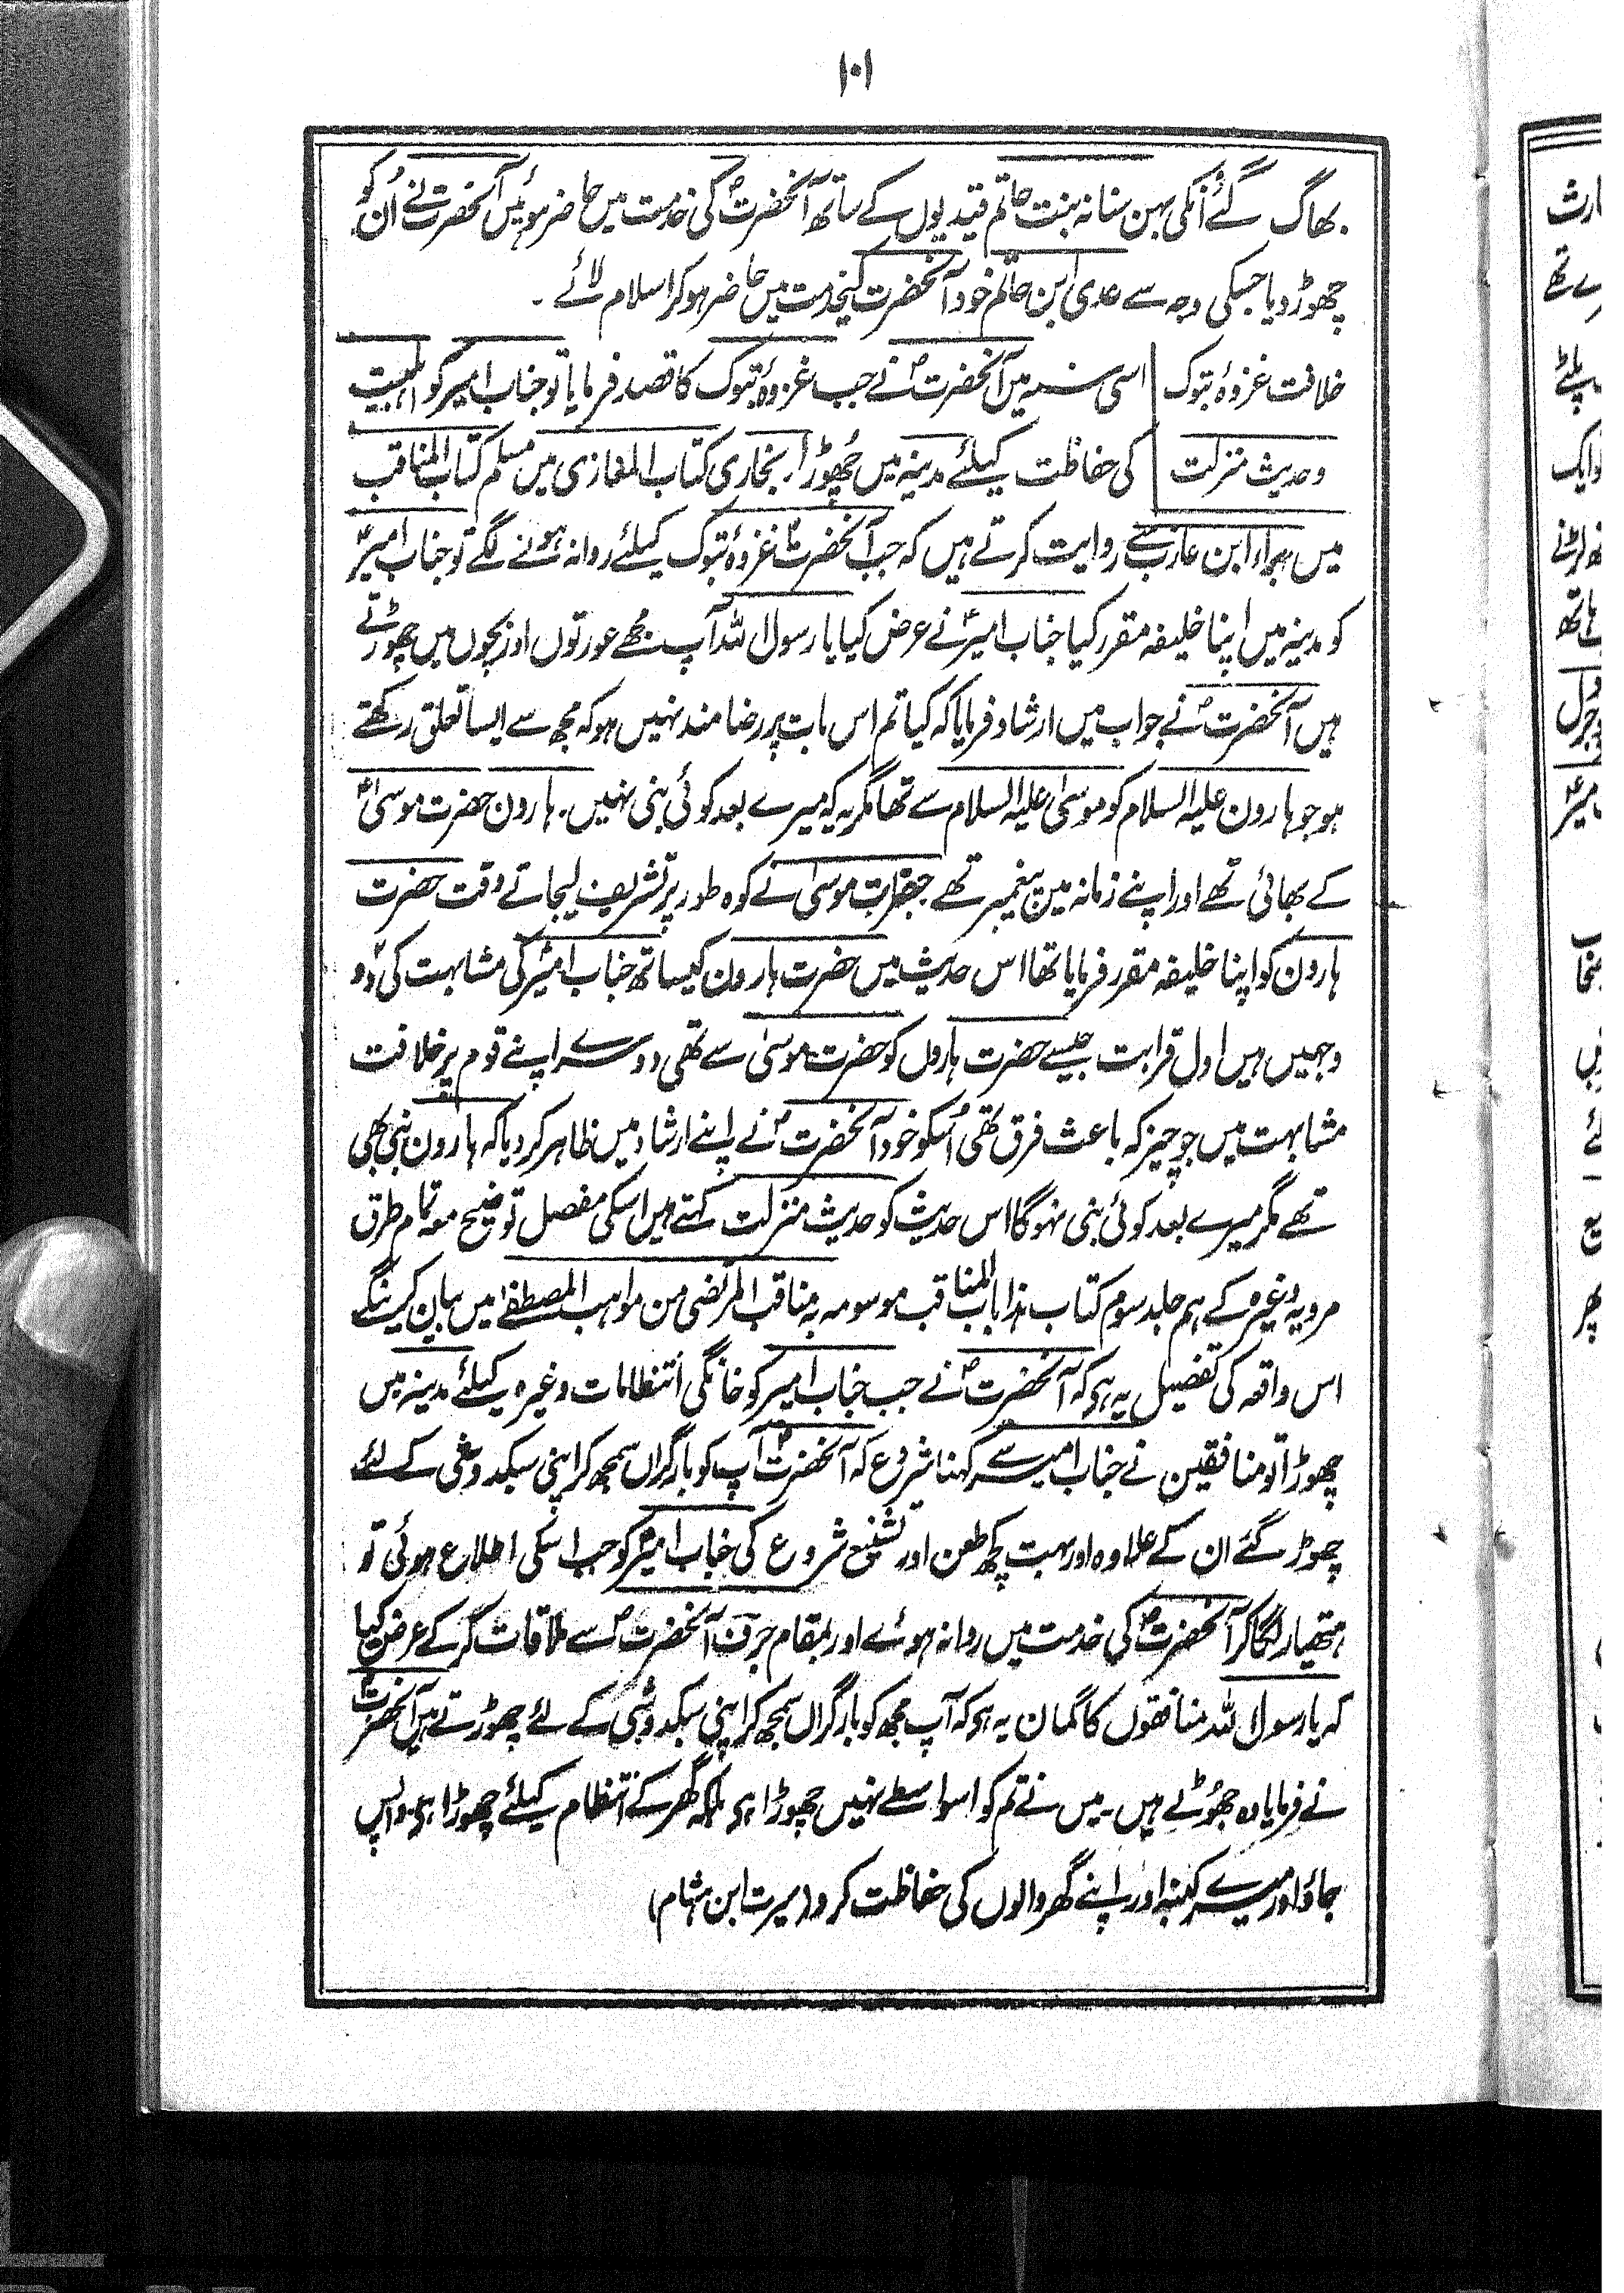 ۱۰۱
بھاگ گئے اُنکی بہن سنانہ بنت حاتم قیدیوں کے ساتھ آنحضرتؐ کی خدمت میں حاضر ہوئیں آنحضرت نے اُن کو
چھوڑ دیا جسکی وجہ سے عدی ابن حاتم خود آنحضرت کیخدمت میں حاضر ہوکر اسلام لائے۔
خلافت غزوۂ تبوک
و حدیث منزلت
اسی سنہ میں آنحضرتؐ نے جب غزوۂ تبوک کا قصد فرمایا تو جناب امیر کو اہلبیت
کی حفاظت کیلئے مدینہ میں چھوڑا۔ بخاری کتاب المغازی میں مسلم کتاب المناقب
میں براء ابن عازب سے روایت کرتے ہیں کہ جب آنحضرتؐ غزوۂ تبوک کیلئے روانہ ہونے لگے تو جناب امیرؑ
کو مدینہ میں اپنا خلیفہ مقرر کیا جناب امیرؑ نے عرض کیا یا رسول اللہ آپ مجھے عورتوں اور بچوں میں چھوڑتے
ہیں آنحضرتؐ نے جواب میں ارشاد فرمایا کہ کیا تم اس بات پر رضامند نہیں ہو کہ مجھ سے ایسا تعلق رکھتے
ہو جو ہارون علیہ السلام کو موسیٰ علیہ السلام سے تھا مگر یہ کہ میرے بعد کوئی نبی نہیں۔ ہارون حضرت موسیٰؑ
کے بھائی تھے اور اپنے زمانہ میں پیغمبر تھے حضرت موسیٰ نے کوہ طور پر تشریف لیجاتے وقت حضرت
ہارون کو اپنا خلیفہ مقرر فرمایا تھا اس حدیث میں حضرت ہارون کیساتھ جناب امیرؑ کی مشابہت کی دو
وجہیں ہیں اول قرابت جیسے حضرت ہارون کو حضرت موسیٰ سے تھی دوسرے اپنے قوم پر خلافت
مشابہت میں جو چیز کہ باعث فرق تھی اُسکو خود آنحضرتؐ نے اپنے ارشاد میں ظاہر کر دیا کہ ہارون نبی بھی
تھے مگر میرے بعد کوئی نبی نہوگا اس حدیث کو حدیث منزلت کہتے ہیں اسکی مفصل توضیح معہ تمام طرق
مرویہ وغیرہ کے ہم جلد سوم کتاب ہذا باب المناقب موسومہ بہ مناقب المرتضیٰ من مواہب المصطفےٰ میں بیان کرینگے
اس واقعہ کی تفصیل یہ ہی کہ آنحضرتؐ نے جب جناب امیر کو خانگی انتظامات وغیرہ کیلئے مدینہ میں
چھوڑا تو منافقین نے جناب امیر سے کہنا شروع کہ آنحضرتؐ آپ کو بارگراں سمجھ کر اپنی سبکدوشی کے لئے
چھوڑ گئے ان کے علاوہ اور بہت کچھ طعن اور تشنیع شروع کی جناب امیرؑ کو جب اسکی اطلاع ہوئی تو
ہتھیار لگا کر آنحضرتؐ کی خدمت میں روانہ ہوئے اور بمقام جرف آنحضرتؐ سے ملاقات کر کے عرض کیا
کہ یا رسول اللہ منافقوں کا گمان یہ ہی کہ آپ مجھ کو بارگراں سمجھ کر اپنی سبکدوشی کے لئے چھوڑتے ہیں آنحضرتؐ
نے فرمایا وہ جھوٹے ہیں۔ میں نے تم کو اسواسطے نہیں چھوڑا ہی بلکہ گھر کے انتظام کیلئے چھوڑا ہی واپس
جاؤ اور میرے کنبہ اور اپنے گھر والوں کی حفاظت کرو (سیرت ابن ہشام)